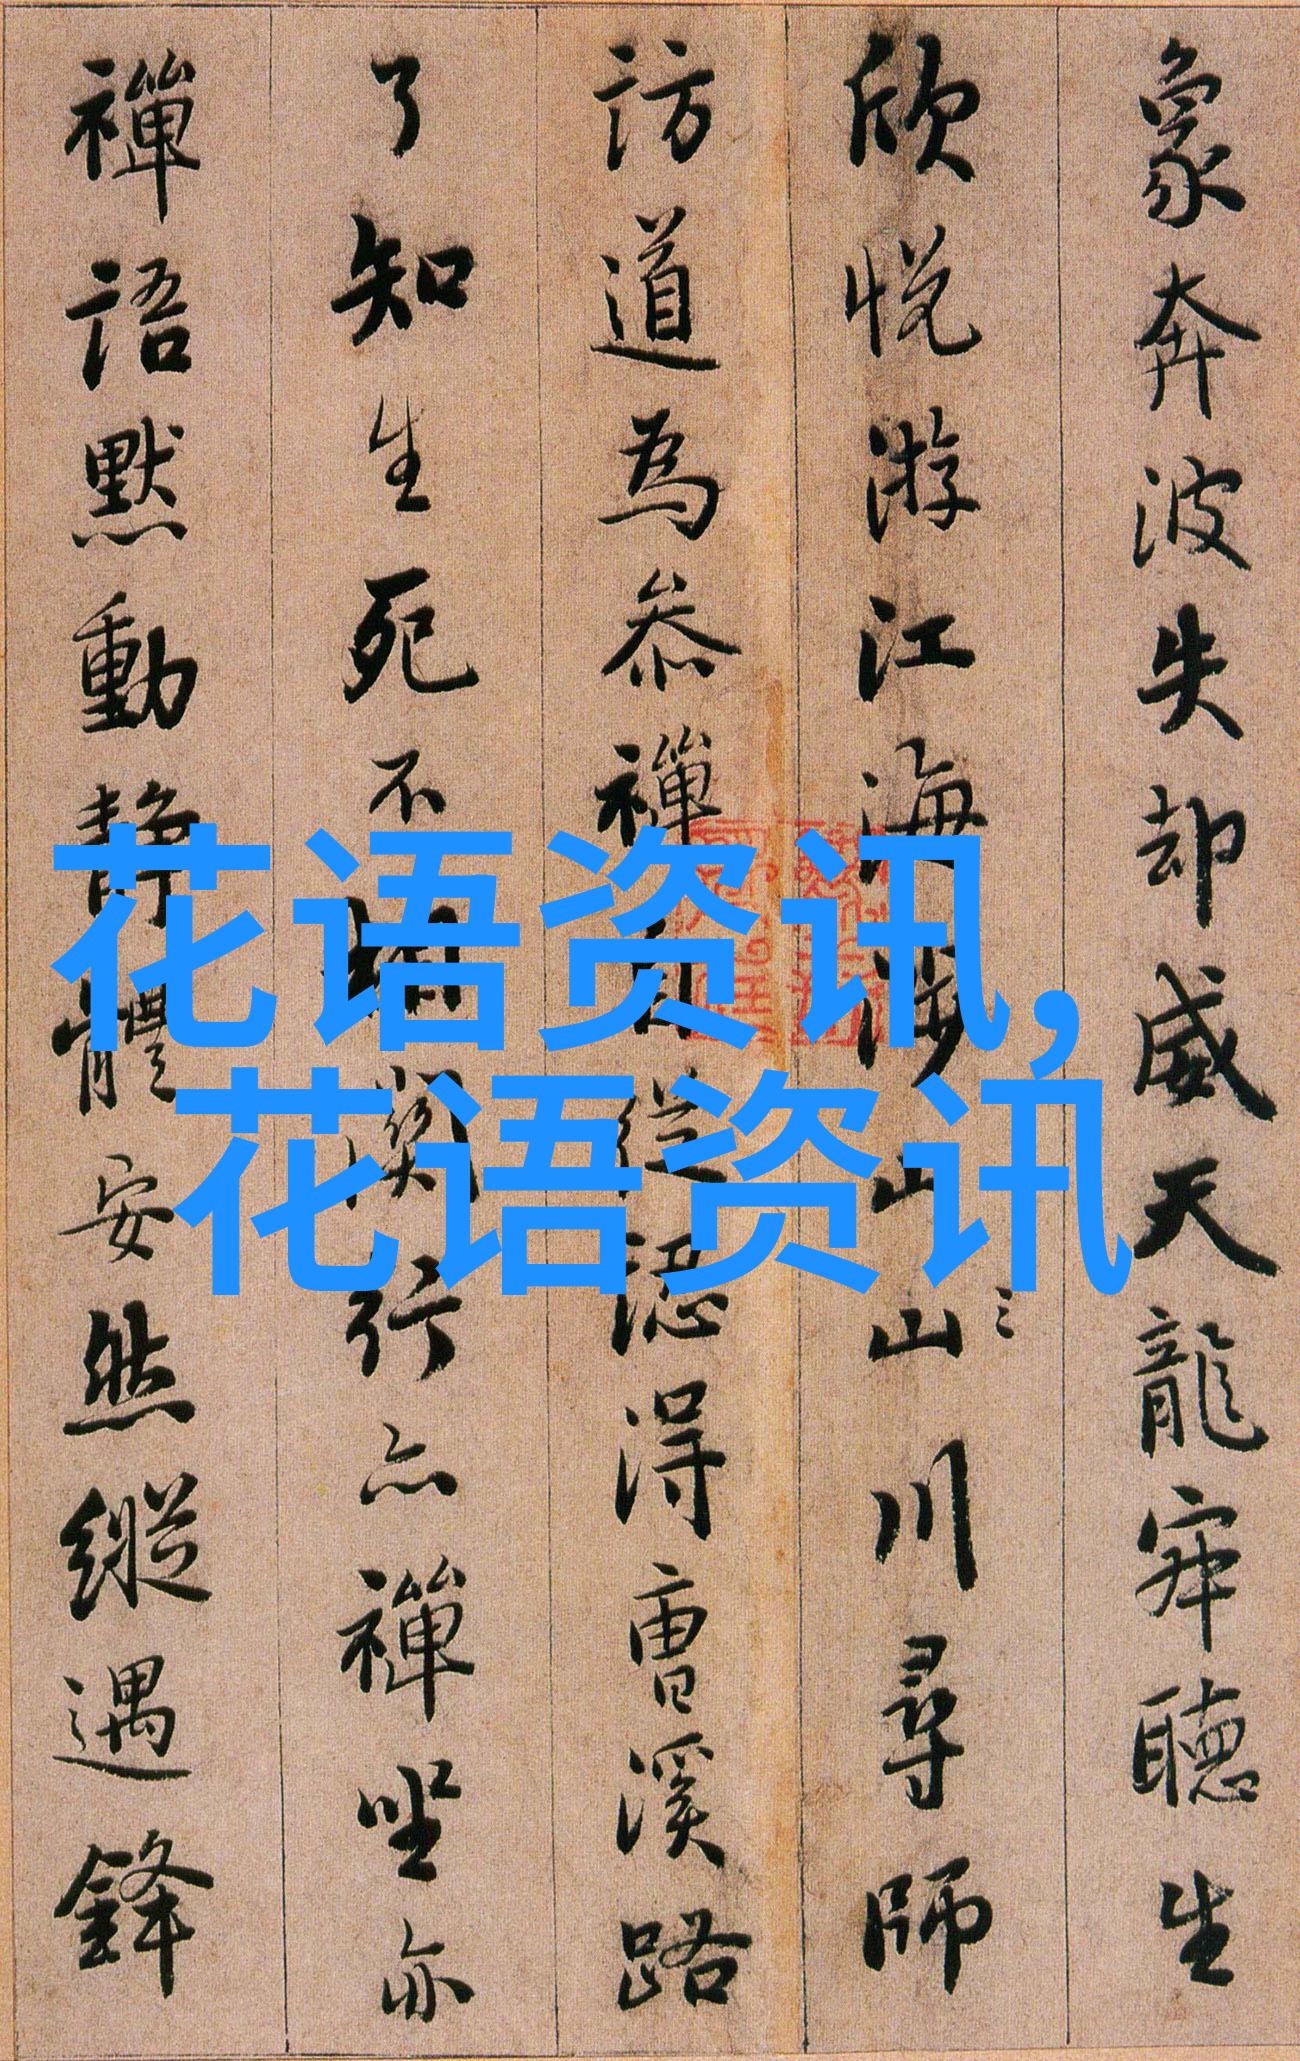 象奔波失却威天龍寂聽生
欣悅游江海涉山川尋師
訪道為參禪自從認得曹溪路
了知生死不相關行亦禪坐亦
禪語默動靜體安然縱遇鋒
花语资讯,
花语资讯